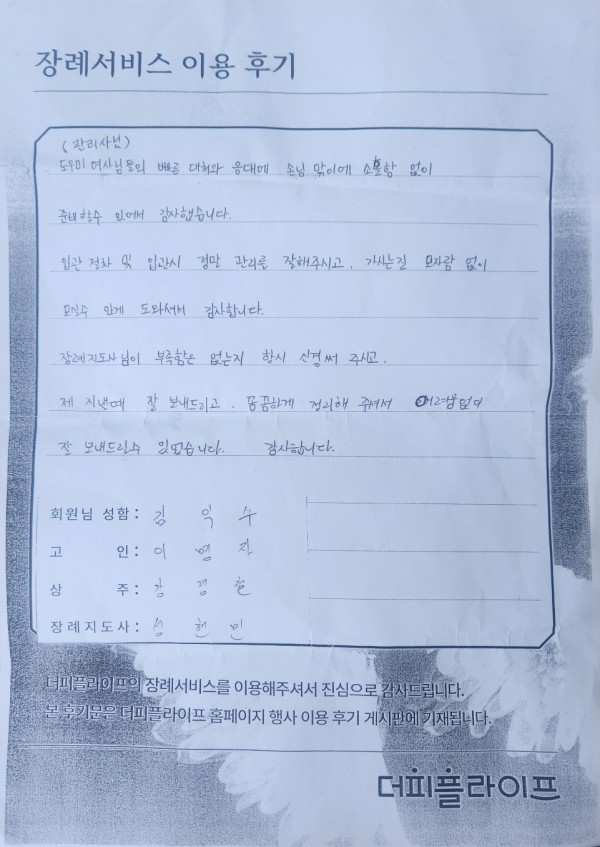 장례서비스 이용 후기
(관리사님)
도우미 여사님들의 빠른 대처와 응대에 손님 맞이에 소홀함 없이
준비할수 있어서 감사했습니다.
입관 절차 및 입관시 정말 관리를 잘해주시고, 가시는길 모자람 없이
모실수 있게 도와줘서 감사합니다.
장례지도사님이 부족함은 없는지 항시 신경써 주시고.
제 지낼때 잘 보내드리고, 꼼꼼하게 정리해 주셔서 어려움없이
잘 보내드릴수 있었습니다. 감사합니다.
회원님 성함 : 김 익 수
고 인 : 이 영 자
상 주 : 강 경
장례지도사 : 성 현 민
더피플라이프의 장례서비스를 이용해주셔서 진심으로 감사드립니다.
본 후기문은 더피플라이프 홈페이지 행사 이용 후기 게시판에 기재됩니다.
더피플라이프